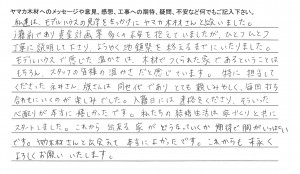 ヤマカ木材へのメッセージや意見、感想、工事への期待、疑問、不安など何でもご記入下さい。
私達は、モデルハウスの見学をきっかけにヤマカ木材さんと出会いました。
入籍前であり資金計画等 多くの不安を抱えていましたが、ひとつひとつ
丁寧に説明して下さり、ようやく地鎮祭を終えるまでにいたりました。
モデルハウスで感じた温かさは、木材でつくられた家であるということは
もちろん、スタッフの皆様の温かさだと感じています。特に担当して
くださった 永井さん、旗さんは同世代でありとても親しみやすく、毎回打ち
合わせにいくのが楽しみでした。入籍日には連絡をくださり、そういった
心配りが本当に嬉しかったです。私たちの結婚生活は家づくりと共に
スタートしました。これから 出来る 家が どうなっていくか 期待で胸がいっぱい
です。ヤマカ木材さんと出会えて 本当によかったです。これからも 末永く
よろしくお願いいたします。